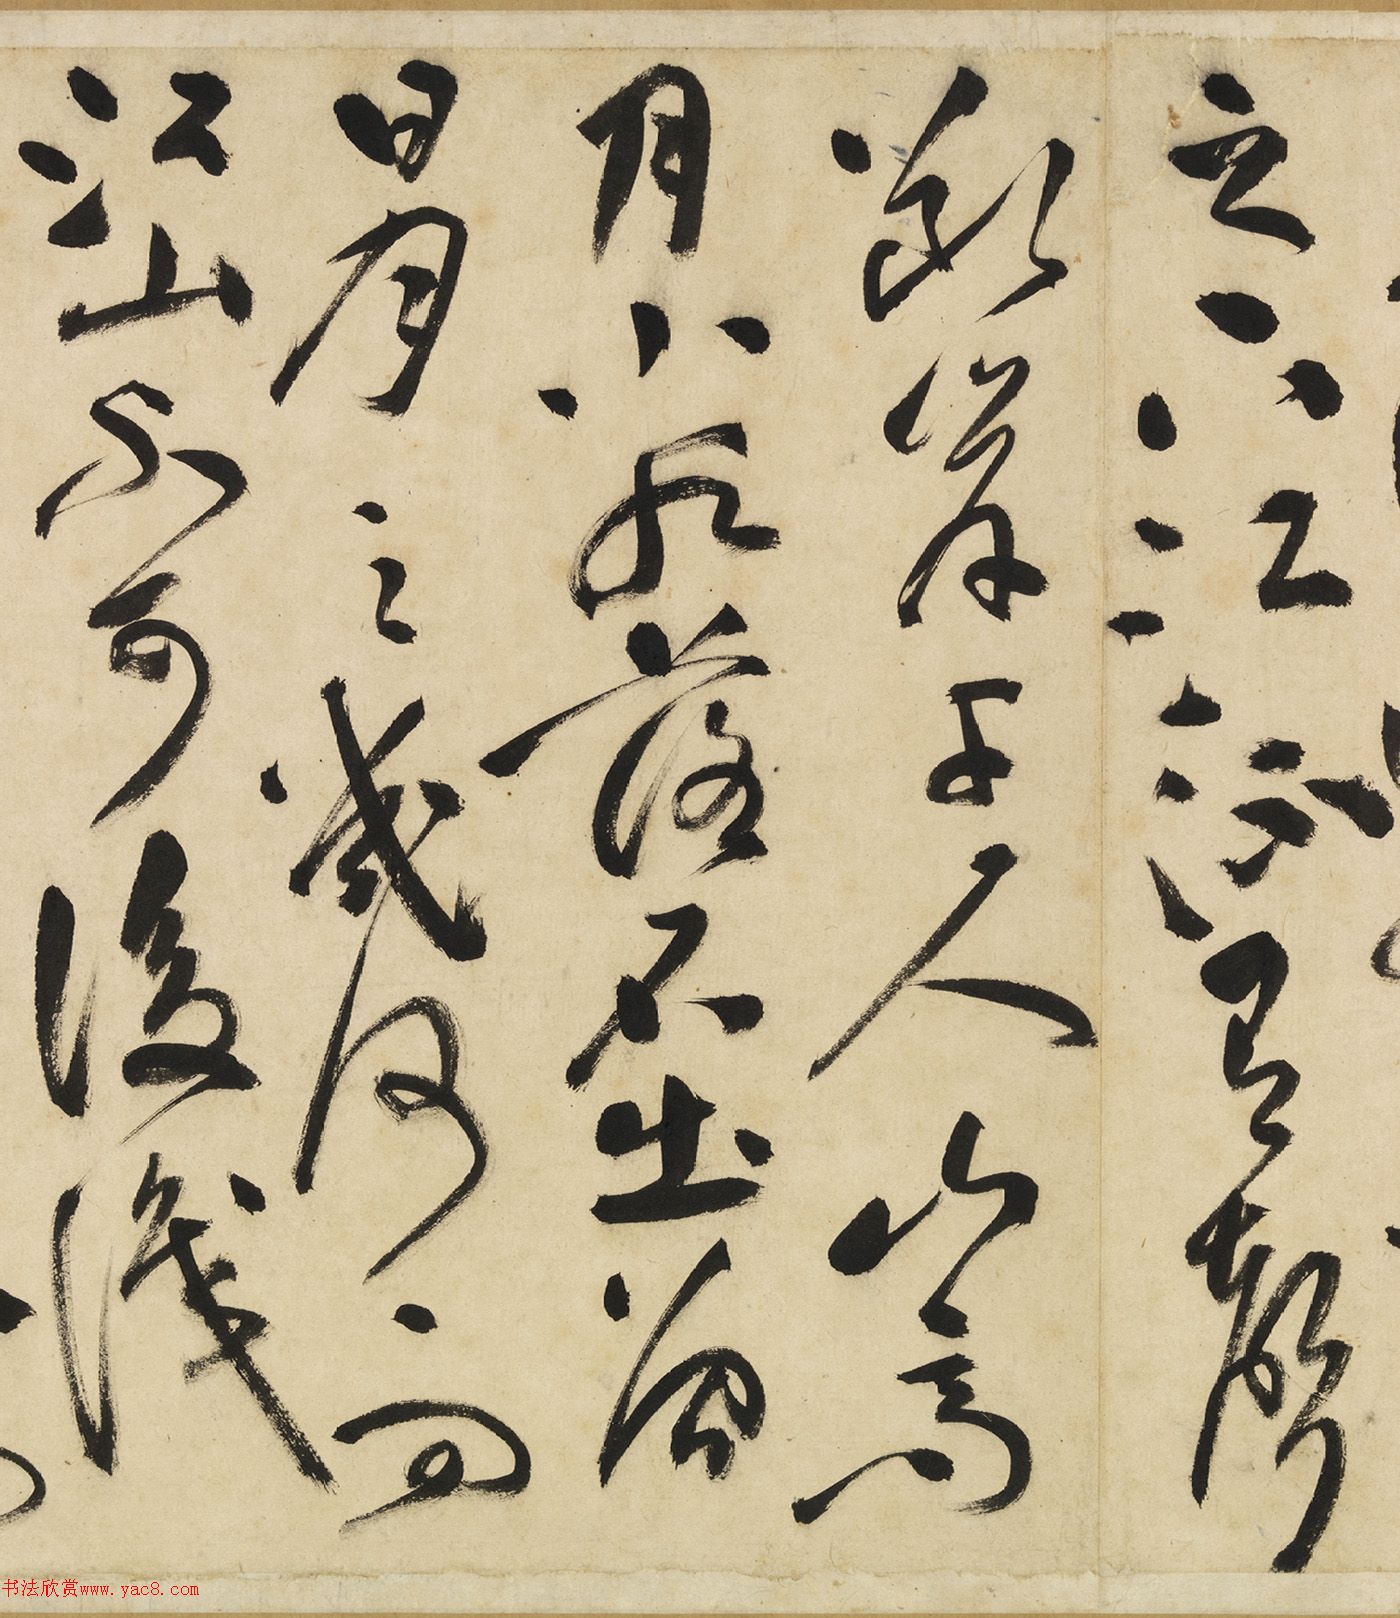 之下江流有聲
斷岸千尺山高
月小水落石出曾
日月之幾何而
江山不可復識
书法欣赏www.yac8.com